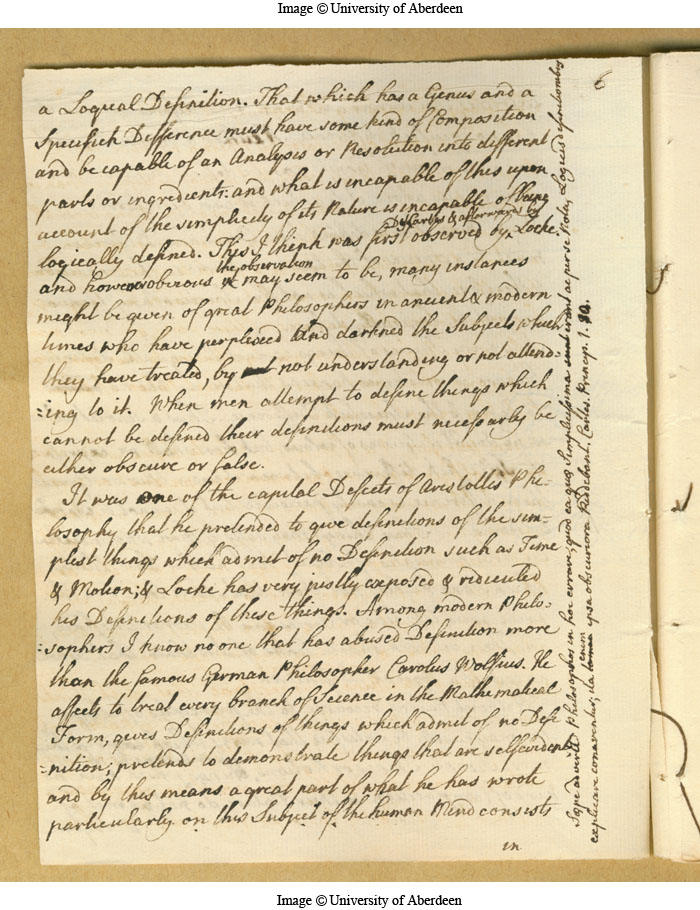 Image © University of Aberdeen
6
a Logical Definition. That which has a Genus and a
Specifick Difference must have some kind of Composition
and be capable of an Analysis or Resolution into different
parts or ingredients: and what is incapable of this upon
account of the simplicity of its Nature is incapable of being
Des Cartes & afterwards by
logically defined. This I think was first observed by Locke.
the observation
and however obvious it may seem to be, many instances
might be given of great Philosophers in ancient & modern
times who have perplexed and darkned the Subjects which
they have treated, by not understanding or not attend=
=ing to it. When men attempt to define things which
cannot be defined their definitions must necessarly be
either obscure or false.
It was one of the capital Defects of Aristotles Phi-
losophy that he pretended to give definitions of the sim-
plest things which admit of no Definition such as Time
& Motion; & Locke has very justly exposed & ridiculed
his Definitions of these things. Among modern Philo-
=sophers I know no one that has abused Definition more
than the famous German Philosopher Carolus Wolfius. He
affects to treat every branch of Science in the Mathematical
Form, gives Definitions of things which admit of no Defi
=nition; pretends to demonstrate things that are selfevident
and by this means a great part of what he has wrote
particularly on this Subject of the human Mind consists
in
Sæpe adverti Philosophos in hoc errare, quod ea quæ Simplicissima sunt erant ac per se nota, Logicis definitionibus
explicare conarentur; ita enim ipsa obscuriora reddebant. Cartes. Princip. 1. 10.
Image © University of Aberdeen